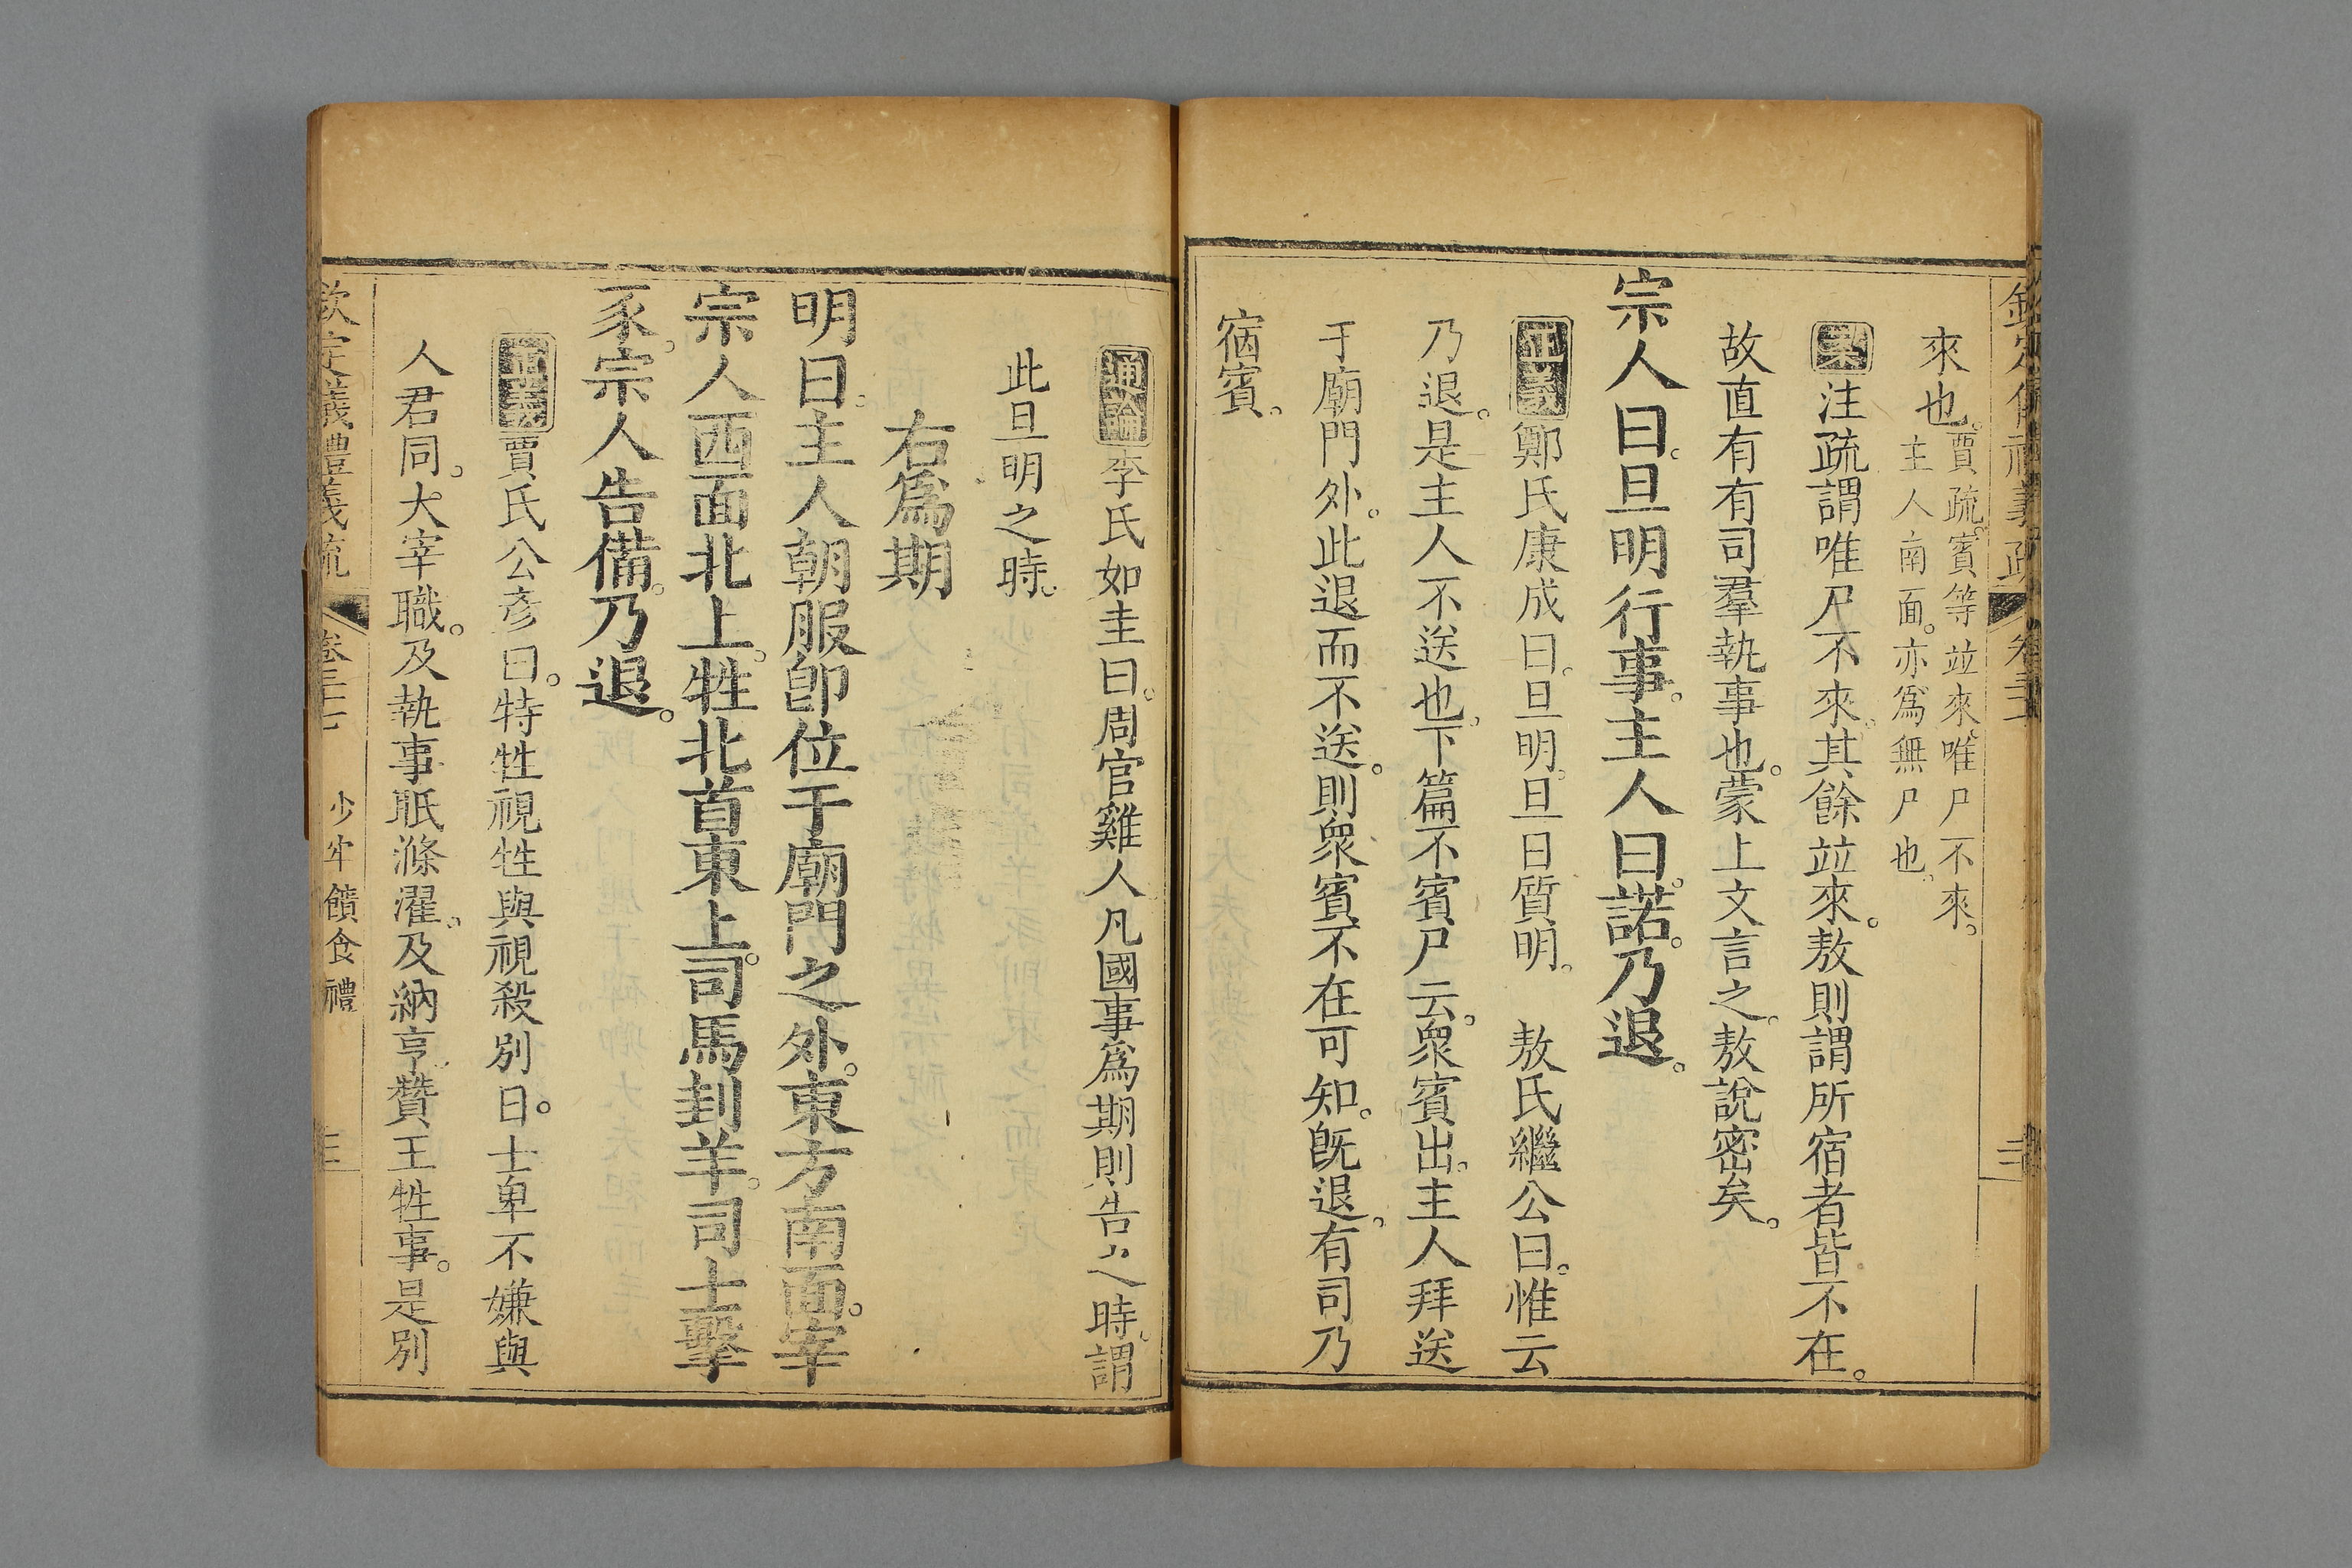 欽定儀禮義疏 卷三十七 二
來也。賈疏。賓等竝來。唯尸不來。
主人南面。亦爲無尸也。
案注疏謂唯尸不來。其餘竝來。敖則謂所宿者皆不在。
故直有有司羣執事也。蒙上文言之。敖說密矣。
宗人曰。旦明行事。主人曰。諾。乃退。
正義鄭氏康成曰。旦明。旦日質明。 敖氏繼公曰。惟云
乃退。是主人不送也。下篇不賓尸云。衆賓出。主人拜送
于廟門外。此退而不送。則衆賓不在可知。旣退。有司乃
宿賓。
通論李氏如圭曰。周官雞人凡國事爲期則告之時。謂
此旦明之時。
右爲期
明日。主人朝服卽位于廟門之外。東方南面。宰
宗人西面北上。牲北首東上。司馬刲羊。司士擊
豕。宗人告備。乃退。
正義賈氏公彥曰。特牲視牲與視殺別日。士卑不嫌與
人君同。大宰職。及執事眡滌濯。及納亨贊王牲事。是別
欽定儀禮義疏 卷三十七 少牢饋食禮 三